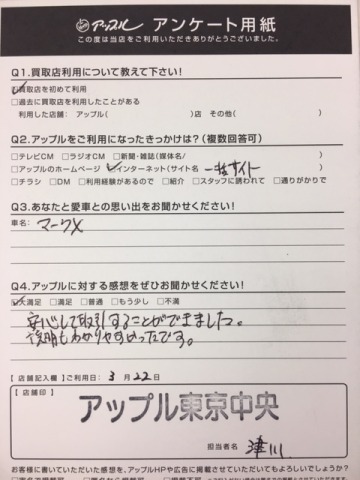 アップル アンケート用紙
この度は当店をご利用いただきありがとうございました。
Q1.買取店利用について教えて下さい!
☑買取店を初めて利用
□過去に買取店を利用したことがある
利用した店舗: アップル( )店 その他( )
Q2.アップルをご利用になったきっかけは?(複数回答可)
□テレビCM □ラジオCM □新聞・雑誌(媒体名/ )
□アップルのホームページ ☑インターネット(サイト名 一括サイト )
□チラシ □DM □利用経験があるので □紹介 □スタッフに誘われて □通りがかりで
Q3.あなたと愛車との思い出をお聞かせください!
車名: マークX
Q4.アップルに対する感想をぜひお聞かせください!
☑大満足 □満足 □普通 □もう少し □不満
安心して取引することができました。
説明もわかりやすかったです。
【店舗記入欄】ご利用日: 3 月 22 日
【店舗印】
アップル東京中央
担当者名 津川
お客様に書いていただいた感想を、アップルHPや広告に掲載させていただいてもよろしいでしょうか?